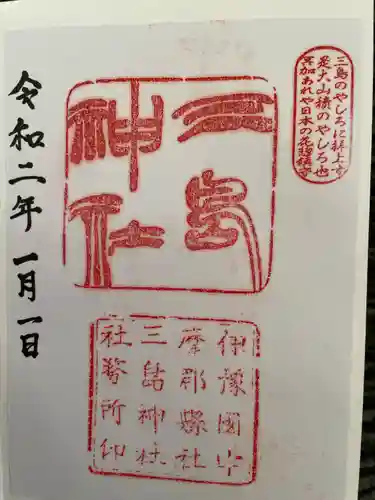 三島のやしろに拝上す
是大山積のやしろ也
冥加あれや日本の花惣鎮守
三島
神社
伊豫國中
摩郡縣社
三島神社
社務所印
令和二年一月一日